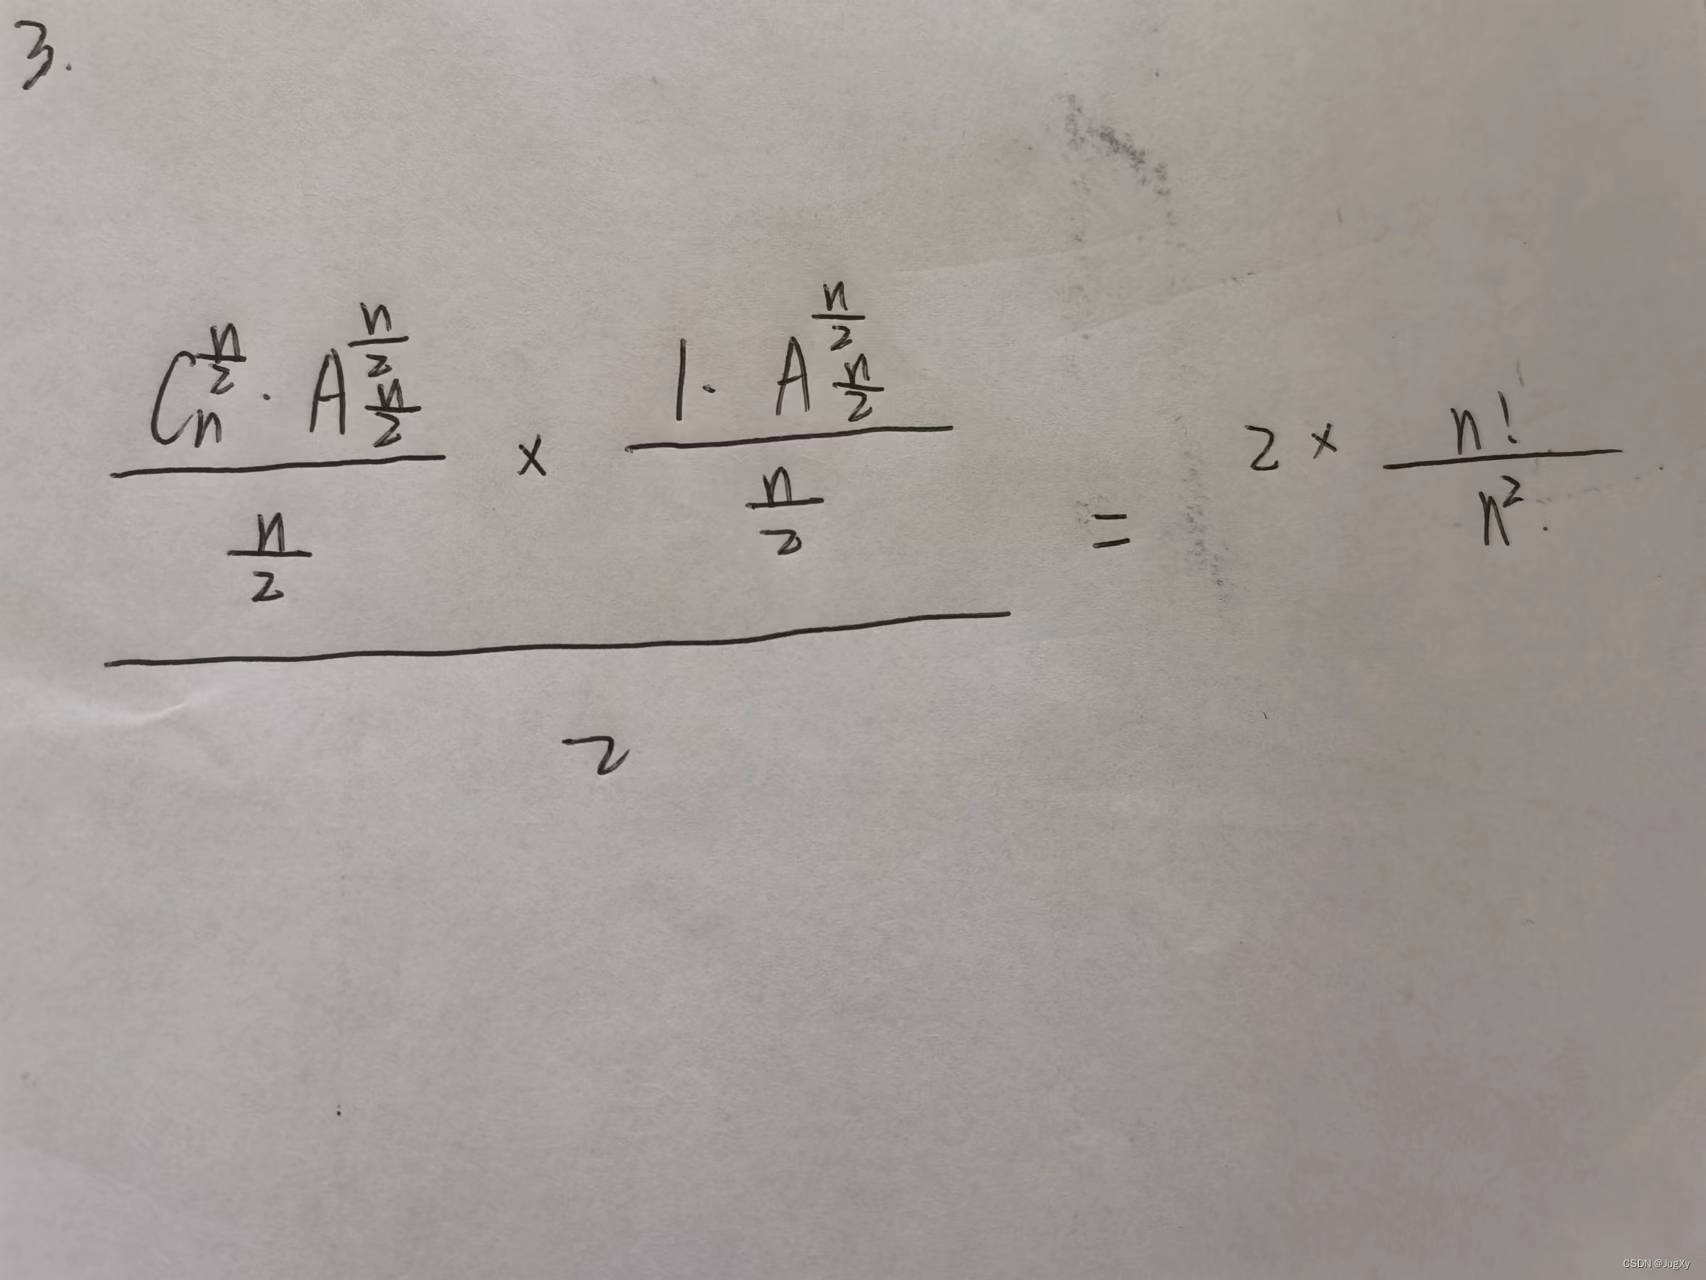 3.
\frac{\frac{C_n^{\frac{n}{2}} \cdot A_{\frac{n}{2}}^{\frac{n}{2}}}{\frac{n}{2}} \times \frac{1 \cdot A_{\frac{n}{2}}^{\frac{n}{2}}}{\frac{n}{2}}}{2} = 2 \times \frac{n!}{n^2}
CSDN @JugXy